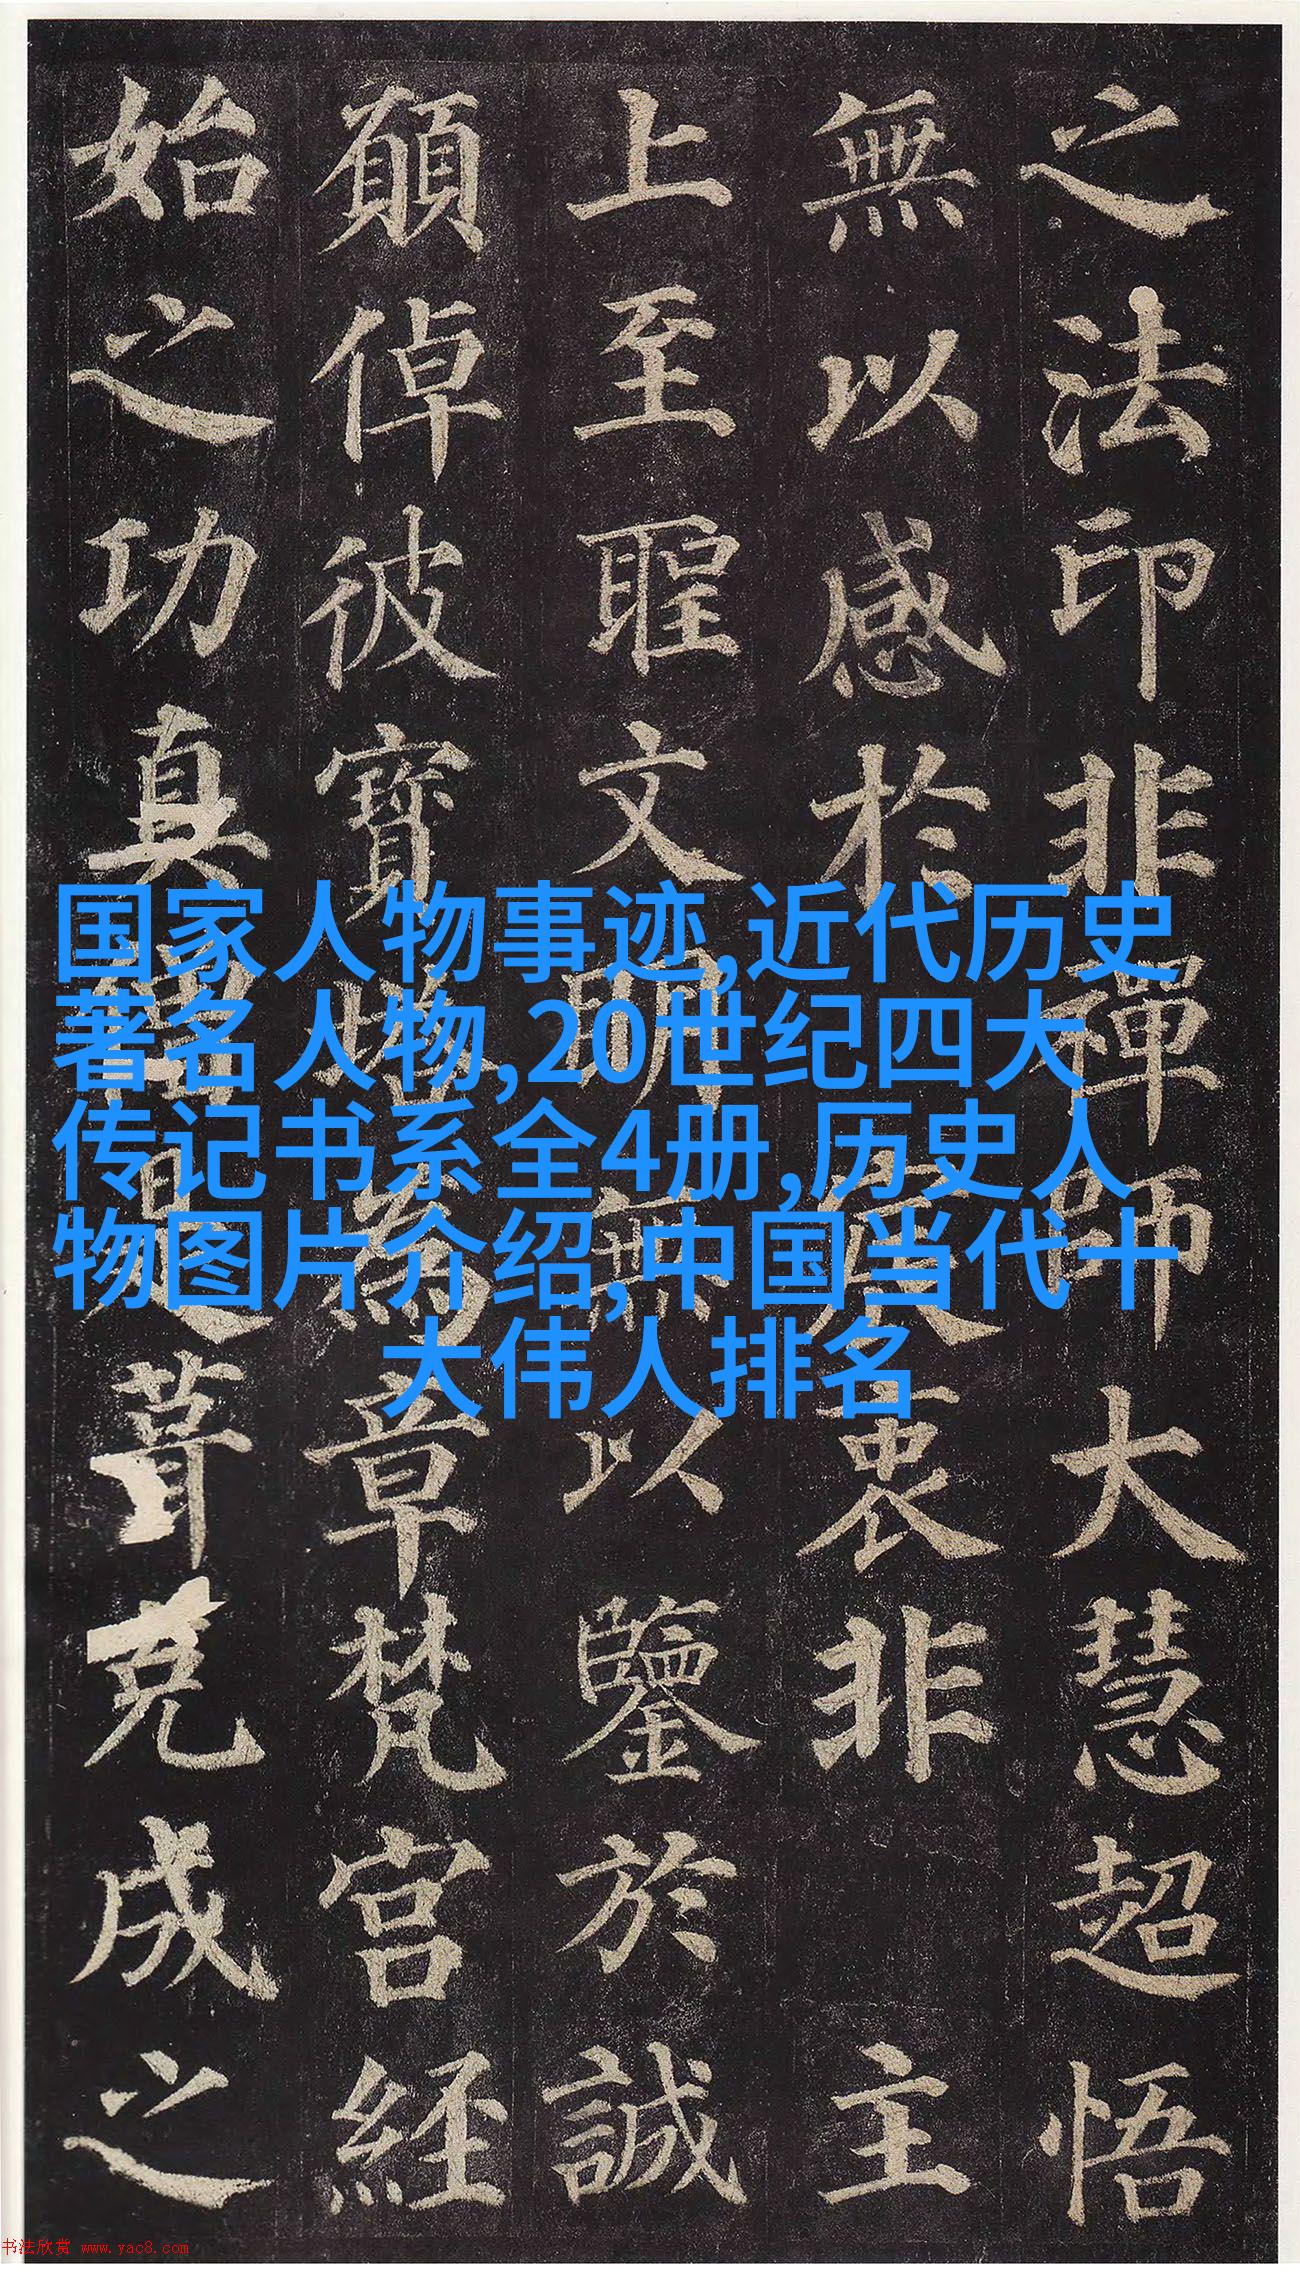 国家人物事迹,近代历史
著名人物,20世纪四大
传记书系全4册,历史人
物图片介绍,中国当代十
大伟人排名
之法印非禪師大慧超悟
無以感於宸衷非主
上至聖文明無以鑒於誠
願倬彼寶塔為章梵宮経
始之功真僧是葺克成之
书法欣赏 www.yac8.com